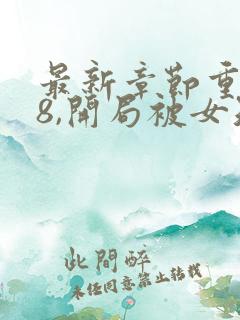 最新章節重
8,開局被女
此間醉
未經同意禁止轉載